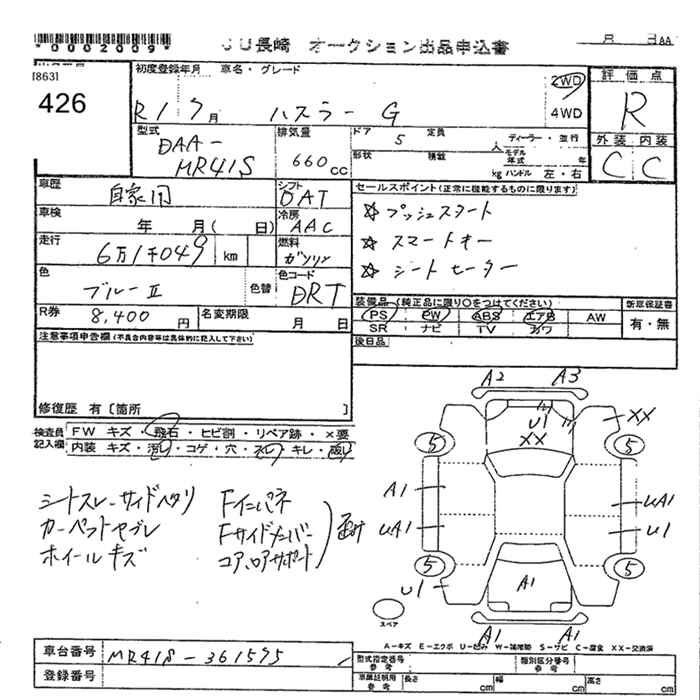 *0002009*
JU長崎 オークション出品申込書
月 日 AA
[863]
426
初度登録年月 車名・グレード
R1 7月 ハスラー G
2WD
4WD
評価点
R
外装 内装
C C
型式
DAA-
MR41S
排気量
660cc
ドア 5 定員 人
ディーラー・並行
モデル年式 年
形状 積載 kg ハンドル 左・右
車歴
自家用
シフト
DAT
車検
年 月( 日)
冷房
AAC
走行
6万1千049 km
燃料
ガソリン
色
ブルーⅡ
色替
色コード
R券
8,400円
名変期限
月 日
セールスポイント(正常に機能するものに限ります)
☆ プッシュスタート
☆ スマートキー
☆ シートヒーター
装備品(純正品に限り○をつけてください)
PS PW ABS エアB AW
SR ナビ TV カワ
新車保証書
有・無
後日品
注意事項申告欄(不具合内容等は具体的に記入して下さい)
修復歴 有 [箇所 ]
検査員記入欄
FW キズ・飛石・ヒビ割・リペア跡・×要
内装 キズ・汚レ・コゲ・穴・スレ・キレ・破レ
シートスレ サイドヘタリ
ホイールキズ
Fインパネ
コア、ロアサポート
A2 A3
U1
XX
XX
5 5
A1
UA1
UA1
U1
5 5
U1
A1
A1 A1
スペア
A-キズ E-エクボ U-凹み W-補修跡 S-サビ C-腐食 XX-交換済
車台番号
MR41S-361595
登録番号
型式指定番号
参考
類別区分番号
参考
車庫証明用
参考
長さ cm 幅 cm 高さ cm